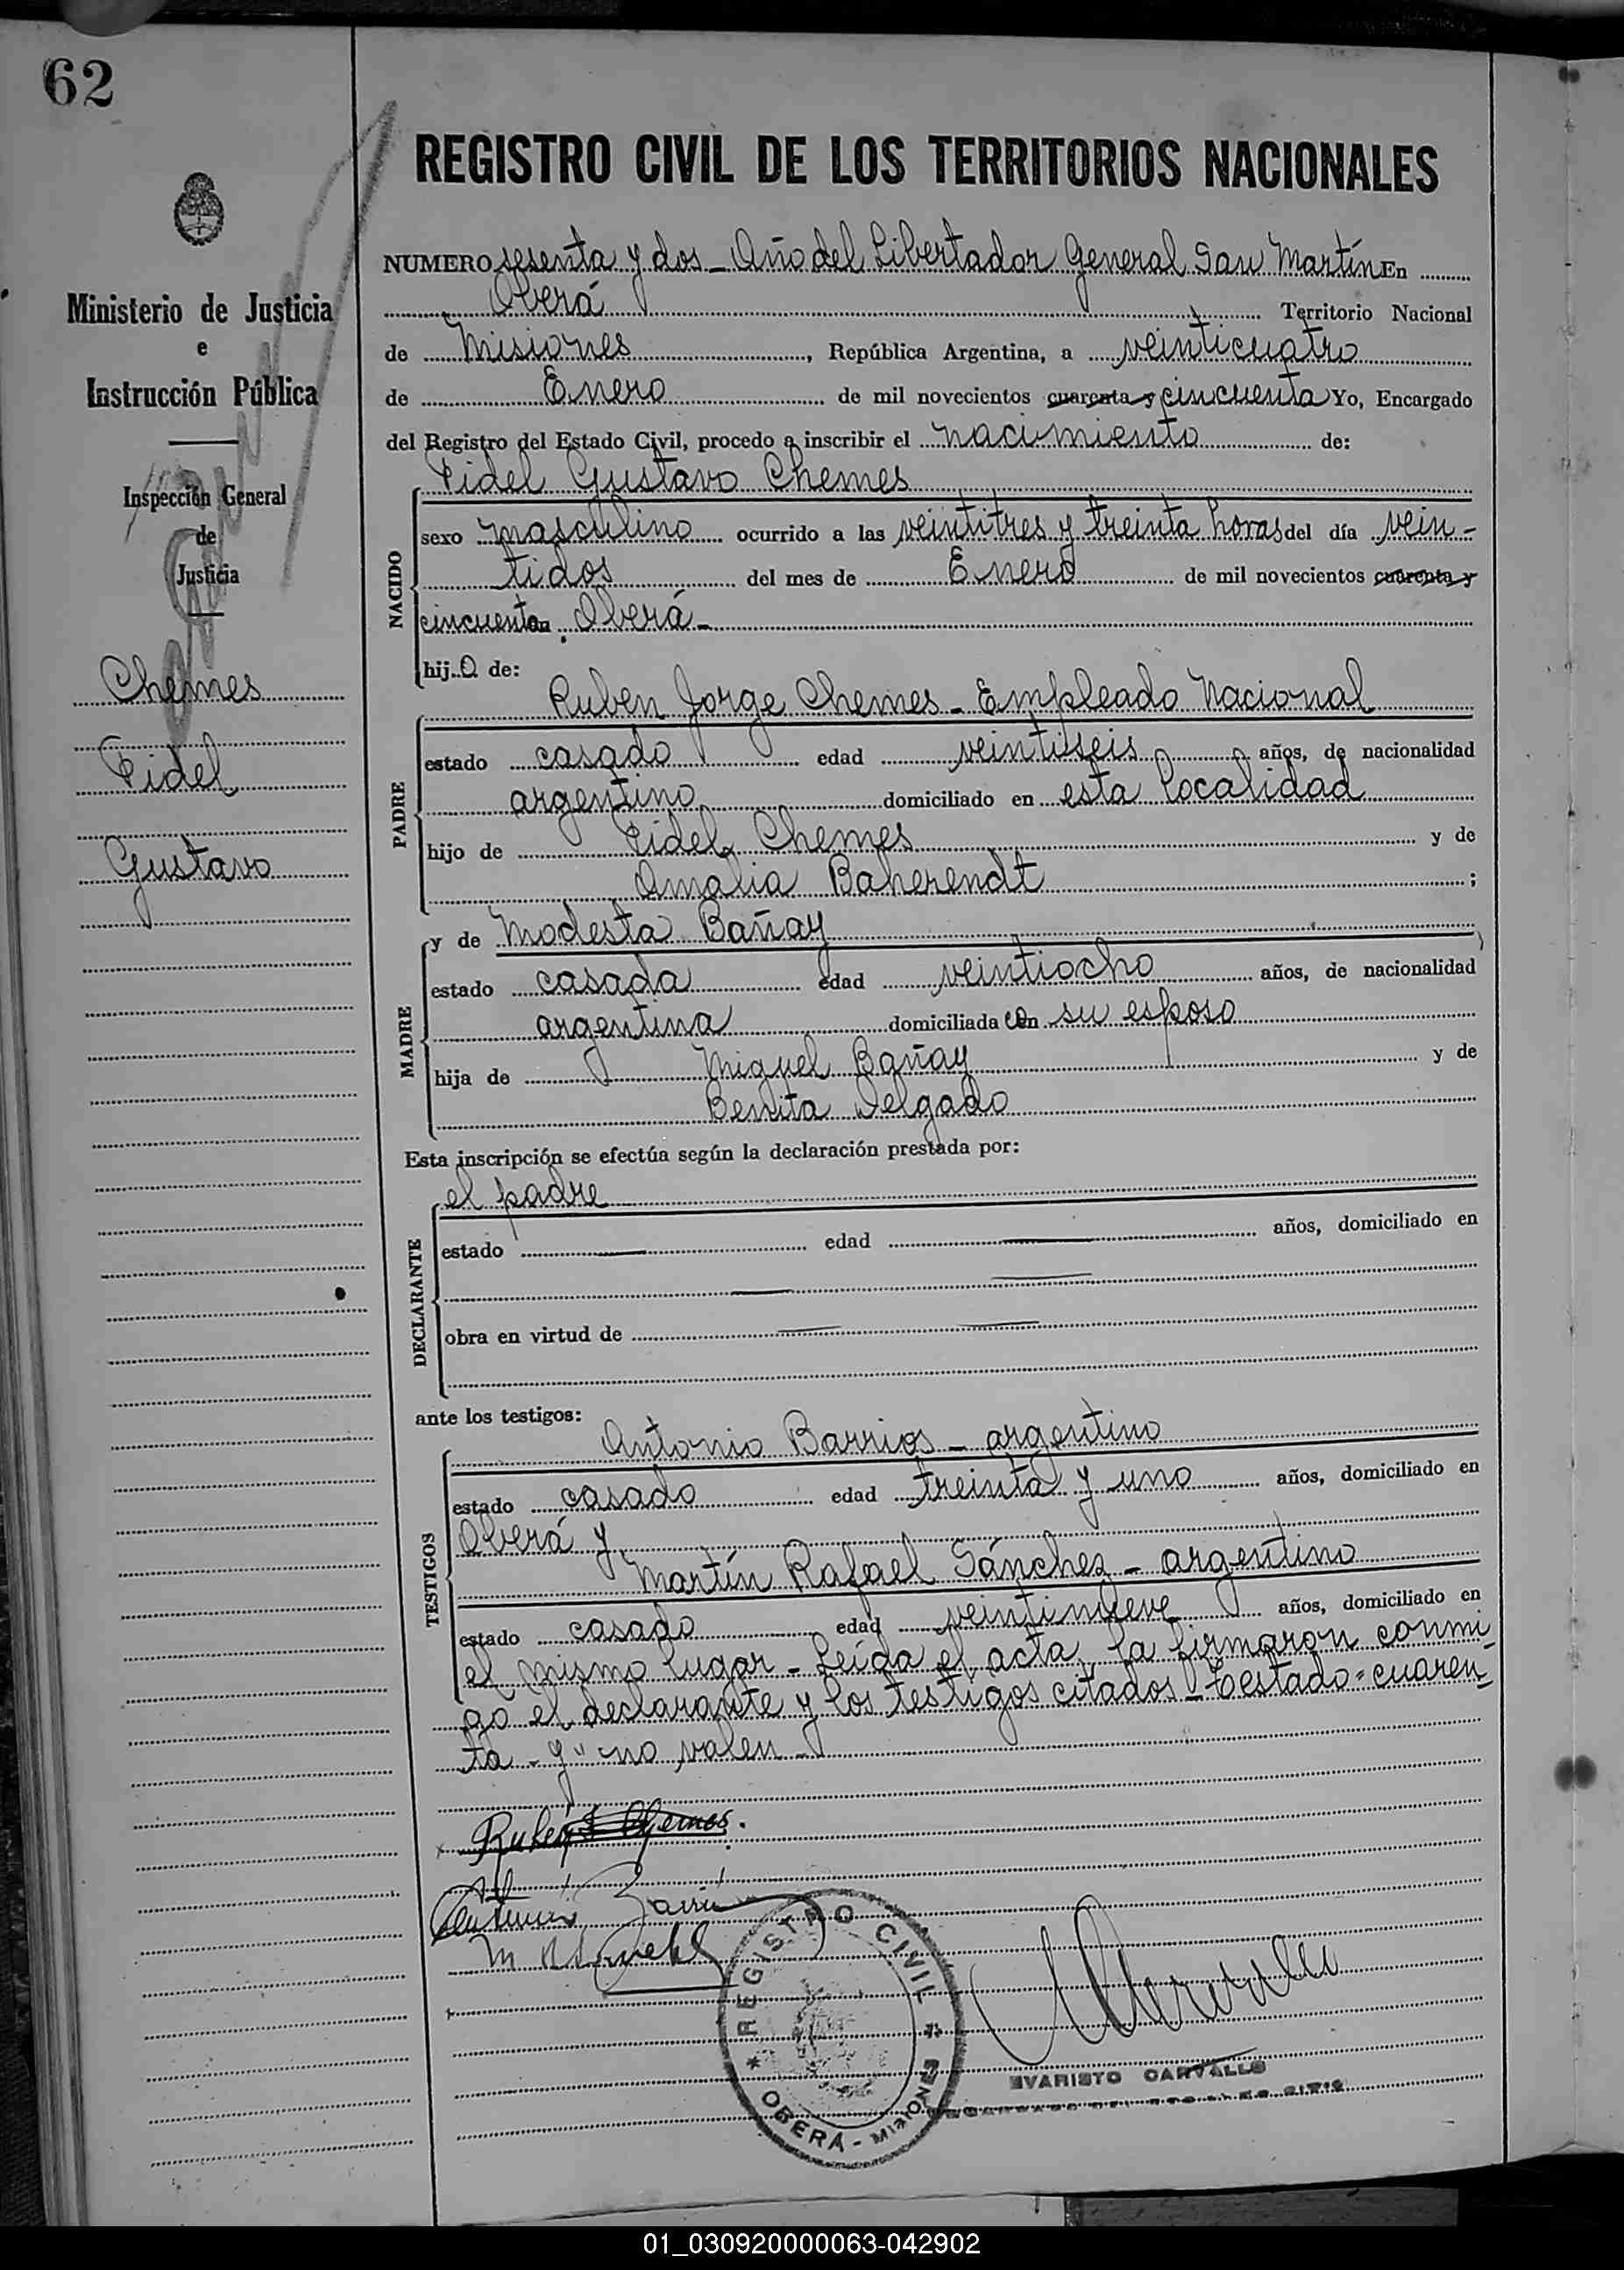 62
REGISTRO CIVIL DE LOS TERRITORIOS NACIONALES
Ministerio de Justicia
e
Instrucción Pública
Inspección General
de
Justicia
Chemes
Fidel
Gustavo
NUMERO sesenta y dos - Año del Libertador General San Martín En
Oberá Territorio Nacional
de Misiones, República Argentina, a veinticuatro
de Enero de mil novecientos cuarenta y cincuenta Yo, Encargado
del Registro del Estado Civil, procedo a inscribir el nacimiento de:
Fidel Gustavo Chemes
NACIDO
sexo masculino ocurrido a las veintitres y treinta horas del día vein-
tidos del mes de Enero de mil novecientos cuarenta y
cincuenta en Oberá -
hijo de:
Ruben Jorge Chemes - Empleado Nacional
PADRE
estado casado edad veintiseis años, de nacionalidad
argentino domiciliado en esta localidad
hijo de Fidel Chemes y de
Amalia Baherendt ;
y de Modesta Bañay
MADRE
estado casada edad veintiocho años, de nacionalidad
argentina domiciliada con su esposo
hija de Miguel Bañay y de
Benita Delgado
Esta inscripción se efectúa según la declaración prestada por:
el padre
DECLARANTE
estado edad años, domiciliado en
obra en virtud de
ante los testigos:
Antonio Barrios - argentino
TESTIGOS
estado casado edad treinta y uno años, domiciliado en
Oberá y
Martín Rafael Sánchez - argentino
estado casado edad veintinueve años, domiciliado en
el mismo lugar - Leída el acta, la firmaron conmi-
go el declarante y los testigos citados - Testado "cuaren-
ta - y" no valen -
Ruben J Chemes.
Antonio Barrios
REGISTRO CIVIL
OBERÁ - MISIONES
EVARISTO CARVALLO
01_030920000063-042902